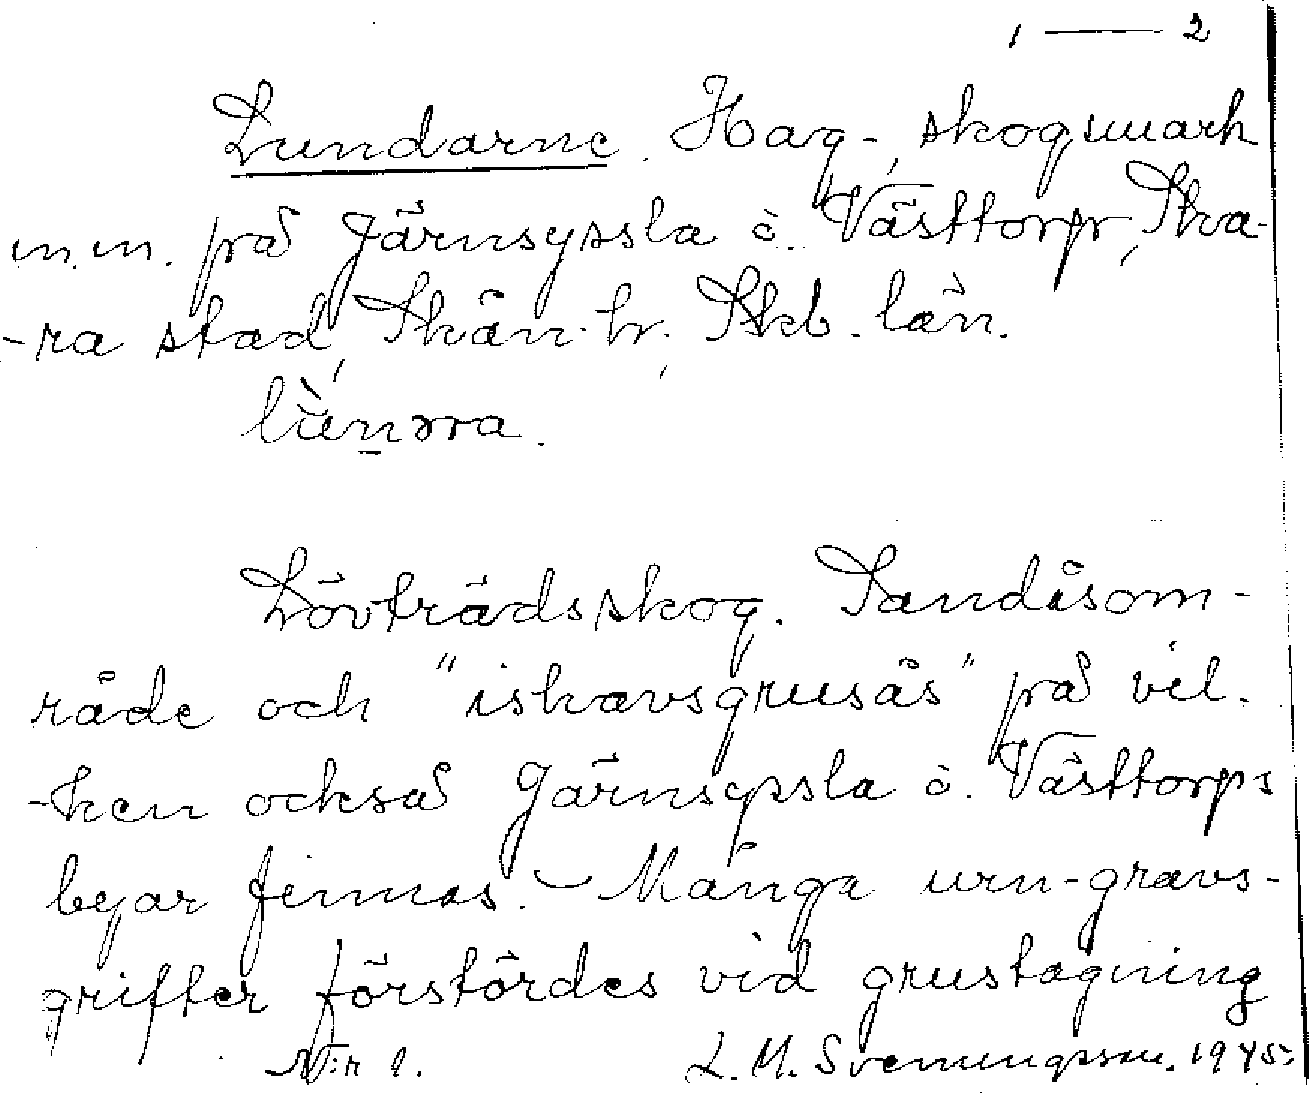 1 — 2
Lundarne. Hag-, skogsmark
m.m. på Järnsyssla o. Västtorp, Ska-
-ra stad, Skän. hr. Skb. län.
Lövträdsskog. Sandåsom-
råde och "iskavsgrusås" på vil-
-ken också Järnsyssla o. Västtorps
byar finnas. - Många urn-gravs-
grifter förstördes vid grustagning
N:r 1. L. M. Svenungsson. 1945.